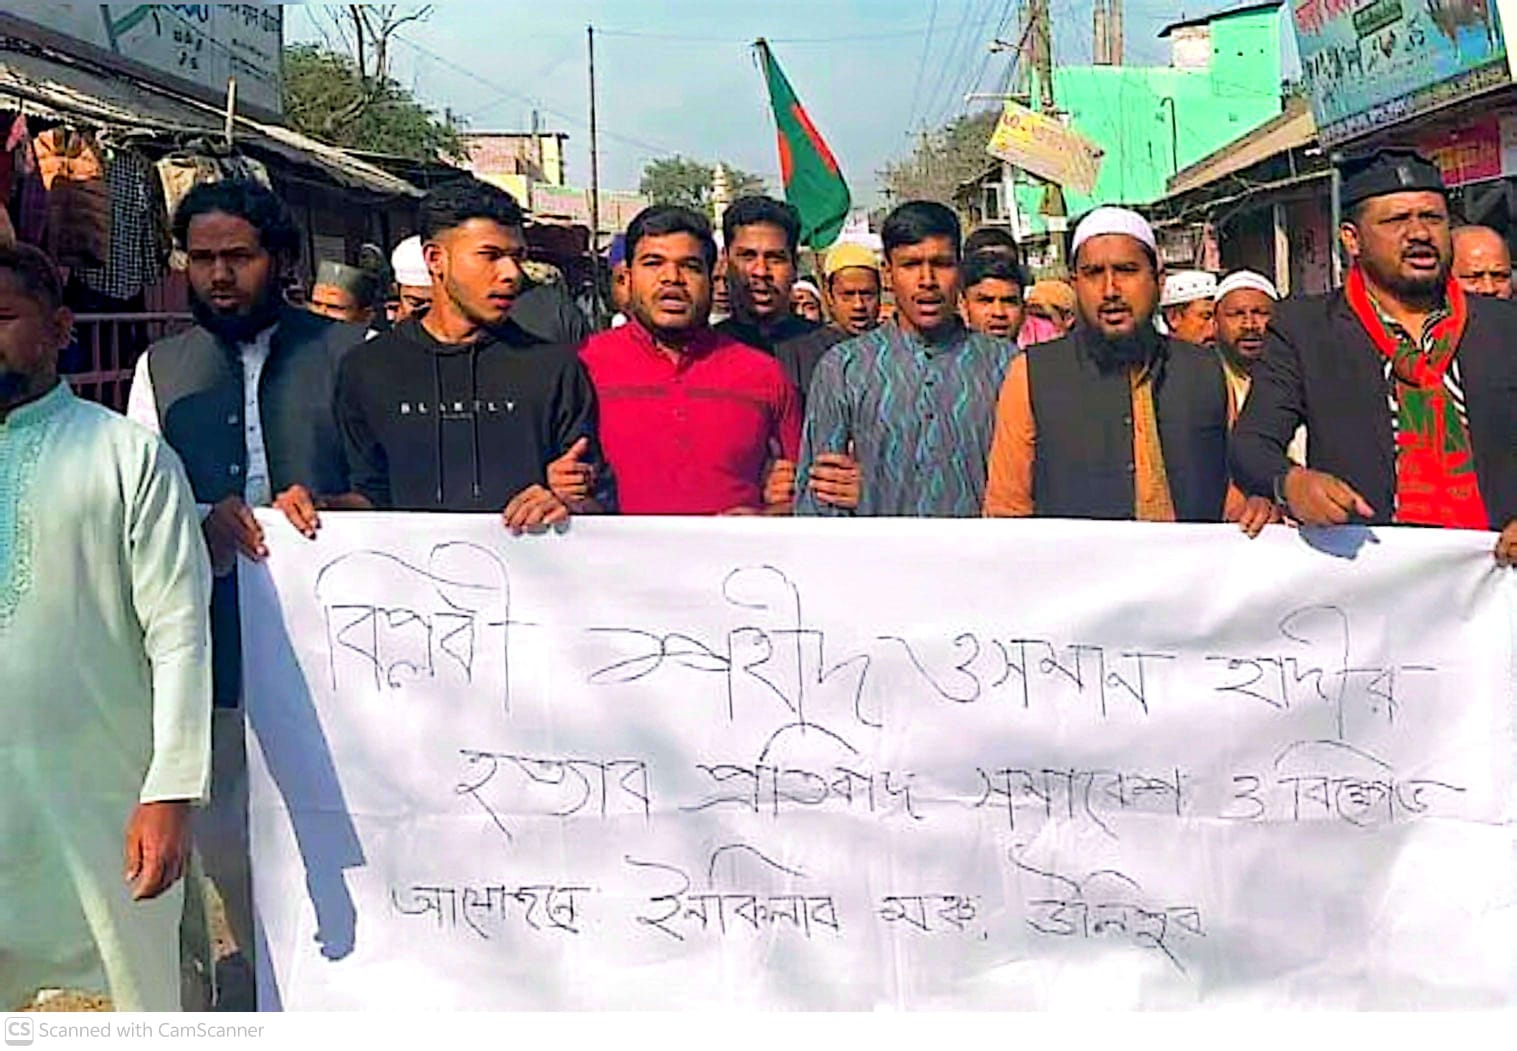 বিপ্লবী শহীদ ওসমান হাদীর
হত্যার প্রতিবাদ সমাবেশ ও বিক্ষোভ
আয়োজনে ইনকিলাব মঞ্চ, উলিপুর
CS Scanned with CamScanner